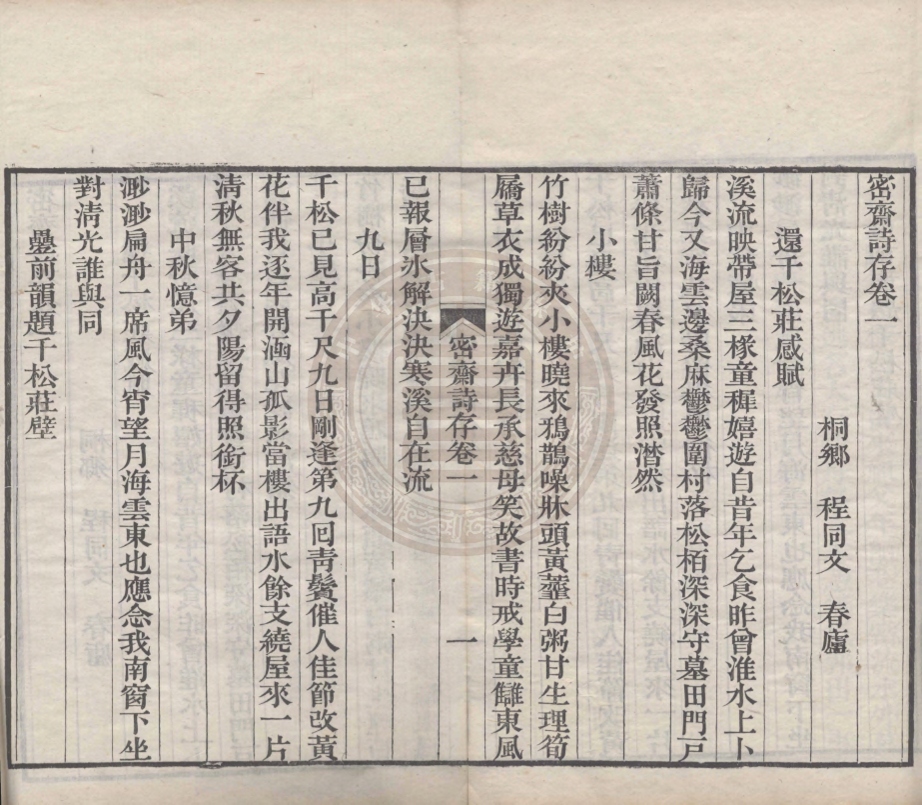 密齋詩存卷一
桐鄉 程同文 春廬
還千松莊感賦
溪流映帶屋三椽童穉嬉遊自昔年乞食昨曾淮水上卜
歸今又海雲邊桑麻鬱鬱圍村落松栢深深守墓田門戸
蕭條甘旨闕春風花發照潸然
小樓
竹樹紛紛夾小樓曉來鴉鵲噪牀頭黃虀白粥甘生理筍
屩草衣成獨遊嘉卉長承慈母笑故書時戒學童讎東風
已報層氷解決決寒溪自在流
密齋詩存卷一
一
九日
千松已見高千尺九日剛逢第九囘靑鬢催人佳節改黃
花伴我逐年開涵山孤影當樓出語水餘支繞屋來一片
淸秋無客共夕陽留得照銜杯
中秋憶弟
渺渺扁舟一席風今宵望月海雲東也應念我南窗下坐
對淸光誰與同
疊前韻題千松莊壁